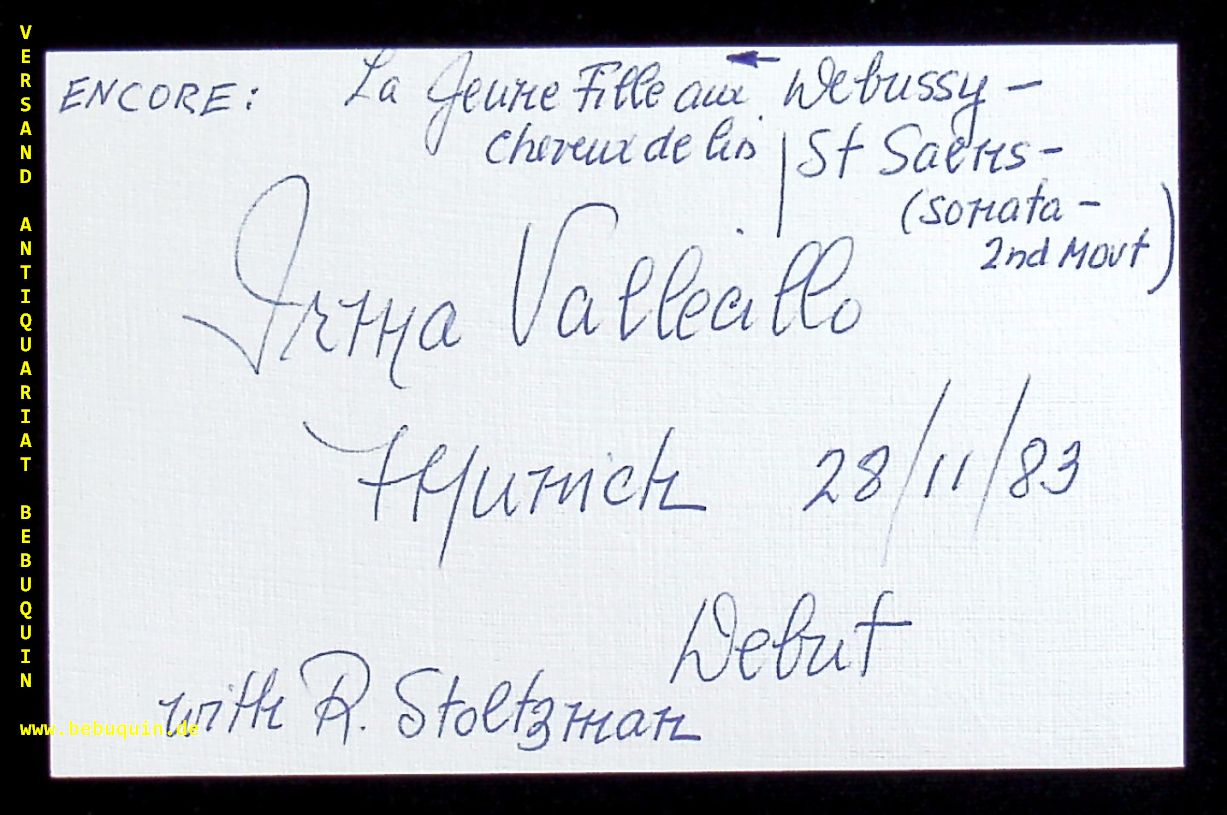 ENCORE: La Jeune Fille aux Debussy –
cheveux de lin St Saens –
(sonata –
2nd Movt)
Irma Vallecillo
Munich 28/11/83
Debut
with R. Stoltzman
VERSAND ANTIQUARIAT BEBUQUIN
www.bebuquin.de